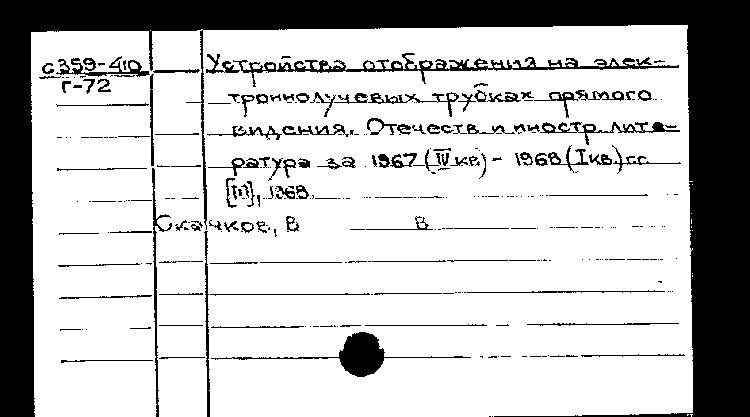 с359-410 Устройства отображения на элек-
г-72
троннолучевых трубках прямого
видения. Отечеств и иностр. лите-
ратура за 1967 (IV кв.) - 1968 (I кв.) г.г.
[М], 1968.
Скачков, В В